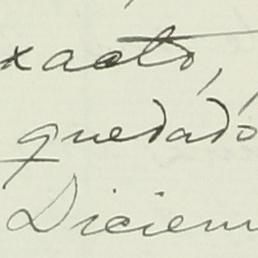 xacto,
quedado
Diciem